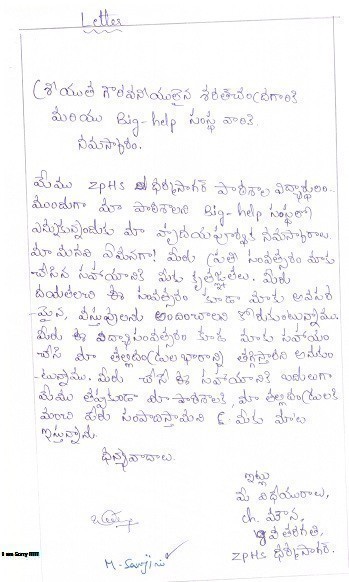 Letter
శ్రీయుత గౌరవనీయులైన శరత్‌చంద్రగారికి
మరియు Big-help సంస్థ వారికి.
నమస్కారం.
మేము ZPHS ధర్మసాగర్ పాఠశాల విద్యార్థులం.
ముందుగా మా పాఠశాలని Big-help సంస్థలో
ఎన్నుకున్నందుకు మా హృదయపూర్వక నమస్కారాలు.
మా మనవి ఏమనగా! మీరు ప్రతి సంవత్సరం మాకు
చేసిన సహాయానికి మీకు కృతజ్ఞతలు. మీరు
దయతలచి ఈ సంవత్సరం కూడా మాకు అవసర
మైన, వస్తువులను అందించాలని కోరుకుంటున్నాము.
మీరు ఈ విద్యాసంవత్సరం కూడ మాకు సహాయం
చేసి మా తల్లిదండ్రుల భారాన్ని తగ్గిస్తారని అనుకుం
టున్నాము. మీరు చేసే ఈ సహాయానికి బదులుగా
మేము తప్పకుండా మా పాఠశాలకి, మా తల్లిదండ్రులకి
మంచి పేరు సంపాదిస్తామని మీకు మాట
ఇస్తున్నాము.
ధన్యవాదాలు.
ఇట్లు
మీ విధేయురాలు,
ch. మౌనిక,
వ తరగతి,
ZPHS ధర్మసాగర్.
I am Sorry !!!!!!